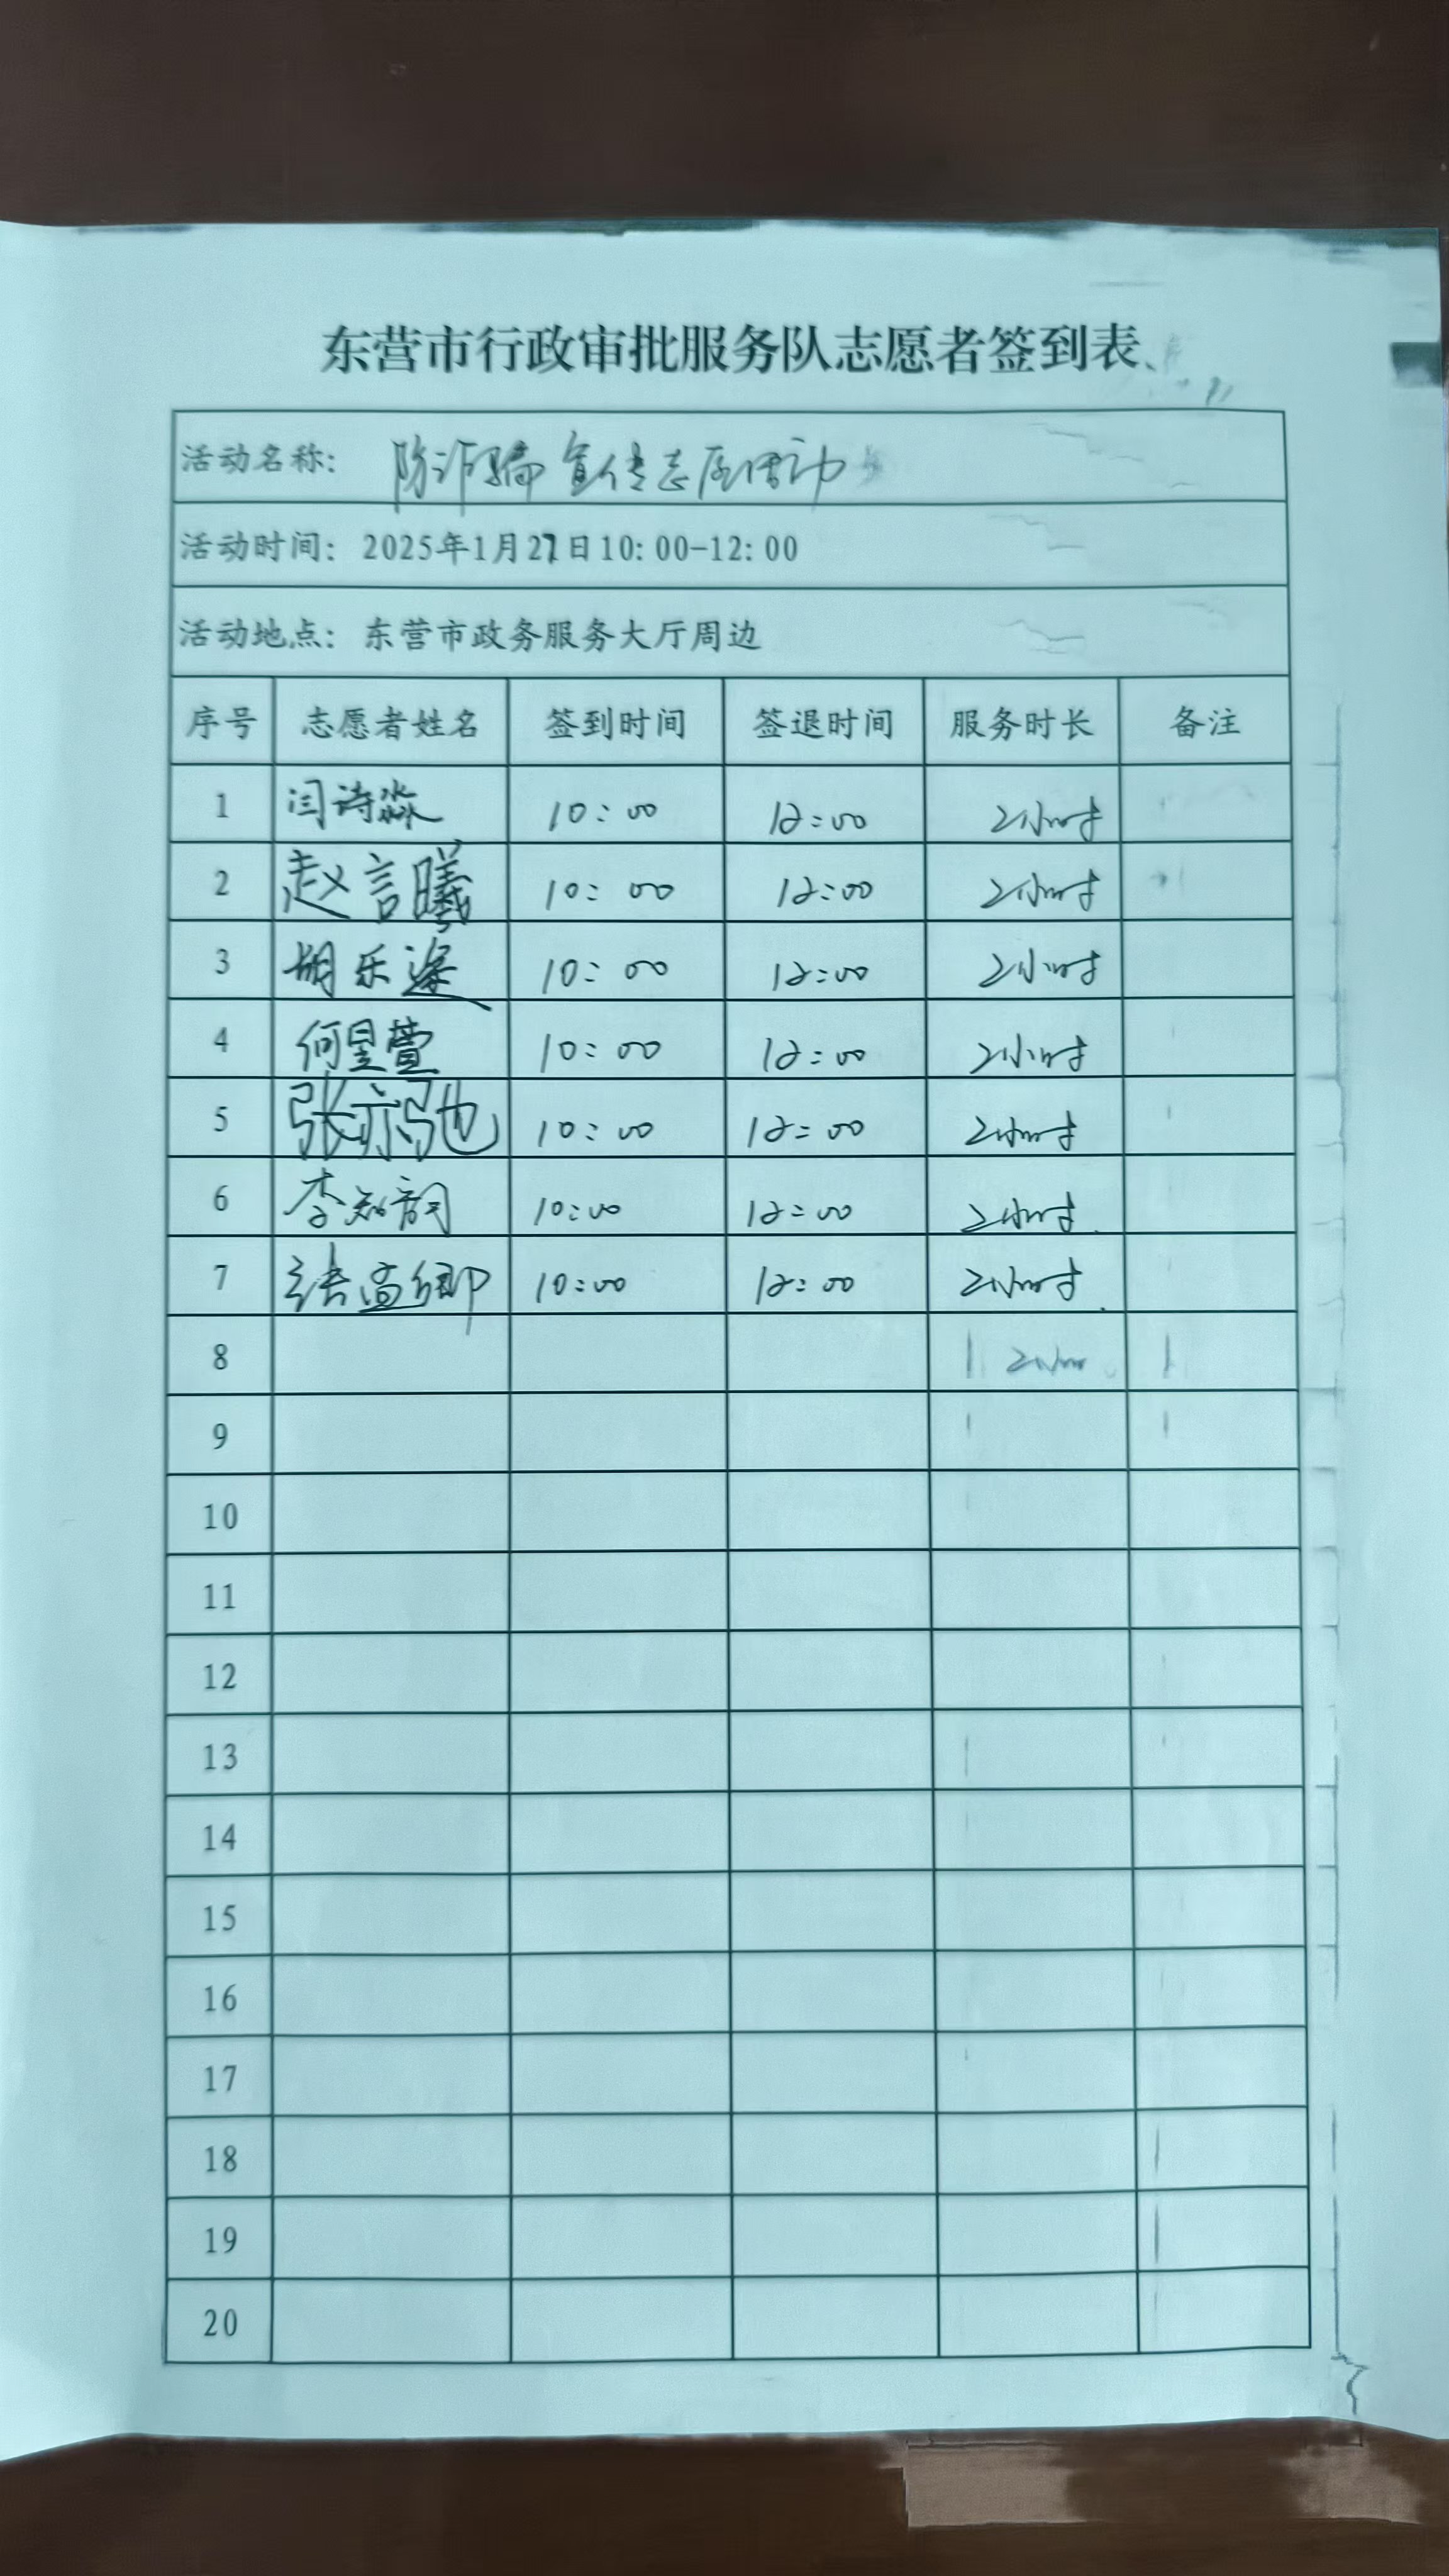 东营市行政审批服务队志愿者签到表
活动名称: 防诈骗宣传志愿活动
活动时间: 2025年1月27日10:00-12:00
活动地点: 东营市政务服务大厅周边
序号 志愿者姓名 签到时间 签退时间 服务时长 备注
1 闫诗淼 10:00 12:00 2小时
2 赵言曦 10:00 12:00 2小时
3 胡乐 10:00 12:00 2小时
4 何昱萱 10:00 12:00 2小时
5 张亦弛 10:00 12:00 2小时
6 李知 10:00 12:00 2小时
7 张孟卿 10:00 12:00 2小时
8
9
10
11
12
13
14
15
16
17
18
19
20